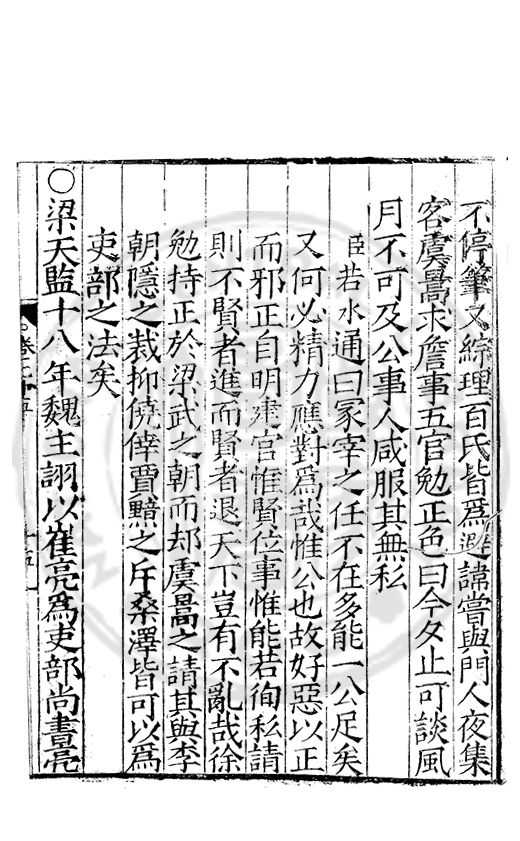 不停筆又綜理百氏皆爲避諱嘗與門人夜集
客虞暠求詹事五官勉正色曰今夕止可談風
月不可及公事人咸服其無私
臣若水通曰冢宰之任不在多能一公足矣
又何必精力應對爲哉惟公也故好惡以正
而邪正自明建官惟賢位事惟能若徇私請
則不賢者進而賢者退天下豈有不亂哉徐
勉持正於梁武之朝而却虞暠之請其與李
朝隱之裁抑僥倖賈黯之斥桑澤皆可以爲
吏部之法矣
○梁天監十八年魏主詡以崔亮爲吏部尚書亮